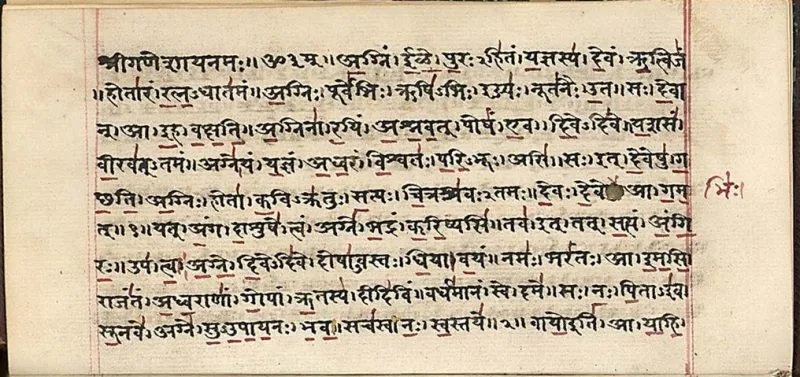 श्रीगणेशायनमः॥ॐ३म्॥अ॒ग्निं।ई॒ळे॒।पु॒रः२हि॑तं।य॒ज्ञस्य॑।दे॒वं।ऋ॒त्विजं॑
॥होता॑रं।र॒त्न॒२धात॑मं॥अ॒ग्निः।पूर्वे॑भिः।ऋषि॑२भिः।ईड्यः॑।नूत॑नैः।उ॒त॥सः।दे॒वा
न्।आ।इ॒ह।व॒क्ष॒ति॒॥अ॒ग्निना॑।र॒यिं।अ॒श्न॒व॒त्।पोषं॑।ए॒व।दि॒वेदि॑वे।य॒शसं॑
वी॒रव॑त्२तमं॥अग्ने॑।यं।य॒ज्ञं।अ॒ध्व॒रं।वि॒श्वतः॑।प॒रि॒२भूः।असि॑॥सः।इत्।दे॒वेषु॑।ग॒
च्छ॒ति॒॥अ॒ग्निः।होता॑।क॒वि२क्र॑तुः।स॒त्यः।चि॒त्रश्र॑वः२तमः॥दे॒वः।दे॒वे आ।ग॒म॒
भिः॑।
त्॥१॥यत्।अं॒ग।दा॒शुषे॑।त्वं।अग्ने॑।भ॒द्रं।क॒रि॒ष्यसि॑॥तव॑।इत्।तत्।स॒त्यं।अं॒गि॒
रः॒॥उप॑।त्वा॒।अ॒ग्ने॒।दि॒वेदि॑वे।दोषा॑२वस्तः।धि॒या।व॒यं॥नमः॑।भरं॑तः।आ।इ॒म॒सि॒
राजं॑तं।अ॒ध्व॒राणां॑।गो॒पां।ऋ॒तस्य॑।दीदि॑विं॥वर्ध॑मानं।स्वे।दमे॑॥सः।नः॒।पि॒ता२इ॑व
सू॒नवे॑।अग्ने॑।सु॒२उ॒पा॒य॒नः।भ॒व॒॥सच॑स्व।नः॒।स्व॒स्तये॑॥२॥वायो॒इति॑।आ।या॒हि॒